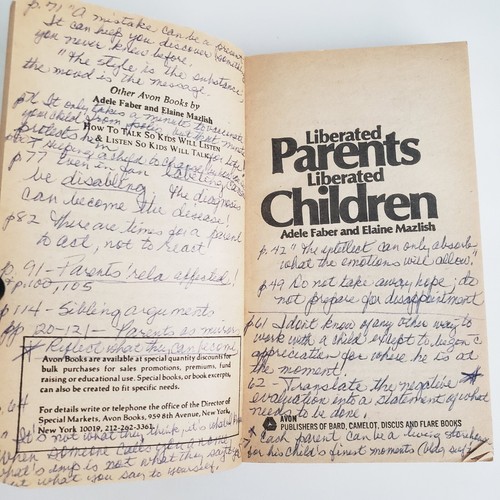 p. 71 "A mistake can be a present
It can help you discover something
you never knew before,
"The style is the substance,
the mood is the message
Other Avon Books by
Adele Faber and Elaine Mazlish
It only takes a minute to vaccinate
your child from
protects him for life!
How To Talk So Kids Will Listen
& Listen So Kids Will Talk
Helping a child to change
p. 77 Even in fun labeling can
be disabling. The diagnosis
can become the disease!
p82 There are times for a parent
to act, not to react!
p. 91 - Parents' rela affected!
pp100, 105
p114 - Sibling arguments
pp. 120-121 - Parents as mirror
* Reflect what they can become
Avon Books are available at special quantity discounts for
bulk purchases for sales promotions, premiums, fund
raising or educational use. Special books, or book excerpts,
can also be created to fit specific needs.
p. 64
For details write or telephone the office of the Director of
Special Markets, Avon Books, 959 8th Avenue, New York,
New York 10019, 212-262-3361.
"It's not what they think, it's what
When someone calls you a name
what's imp is not what they say
it what you say to yourself.
Liberated
Parents
Liberated
Children
Adele Faber and Elaine Mazlish
p. 47 "The intellect can only absorb
what the emotions will allow."
p. 49 Do not take away hope; do
not prepare for disappointment
p. 61 I don't know of any other way to
work with a child except to begin c
appreciation for where he is at
the moment!
62 - Translate the negative *
evaluation into a statement of what
needs to be done.
AVON
PUBLISHERS OF BARD, CAMELOT, DISCUS AND FLARE BOOKS
* Each parent can be a living storehouse
for his child's finest moments